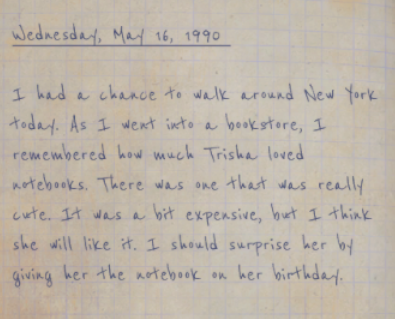 Wednesday, May 16, 1990
I had a chance to walk around New York
today. As I went into a bookstore, I
remembered how much Trisha loved
notebooks. There was one that was really
cute. It was a bit expensive, but I think
she will like it. I should surprise her by
giving her the notebook on her birthday.